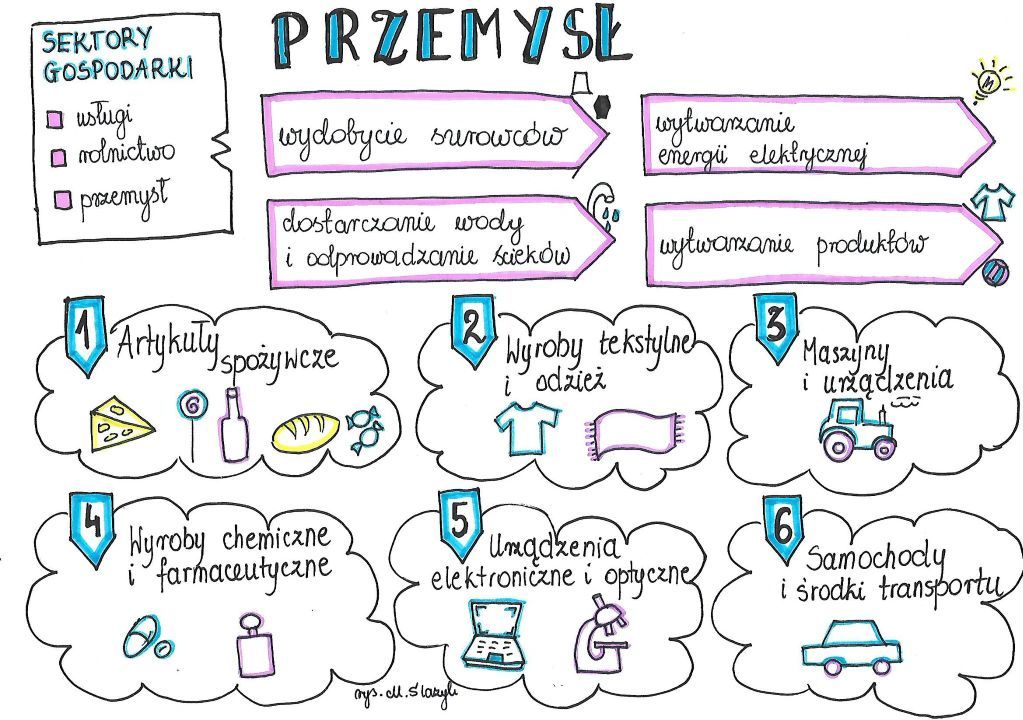 PRZEMYSŁ
SEKTORY
GOSPODARKI
usługi
rolnictwo
przemysł
wydobycie surowców
wytwarzanie
energii elektrycznej
dostarczanie wody
i odprowadzanie ścieków
wytwarzanie produktów
1
Artykuły
spożywcze
2
Wyroby tekstylne
i odzież
3
Maszyny
i urządzenia
4
Wyroby chemiczne
i farmaceutyczne
5
Urządzenia
elektroniczne i optyczne
6
Samochody
i środki transportu
rys. M.